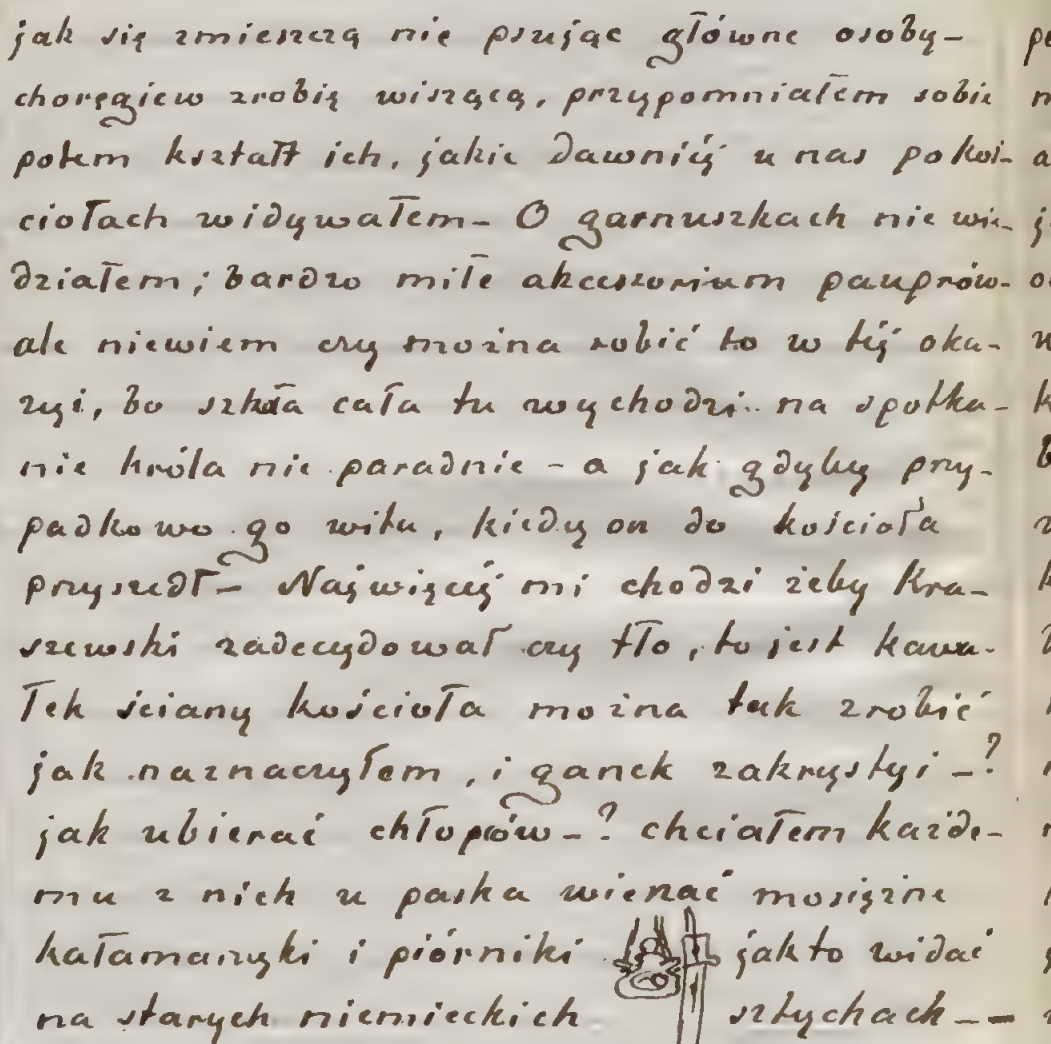 jak się zmieszczą nie psując główne osoby–
chorągiew zrobię wiszącą, przypomniałem sobie
potem kształt ich, jakie dawniéj u nas po koś-
ciołach widywałem– O garnuszkach nie wie-
działem; bardzo miłe akcessorium pauprów–
ale niewiem czy można robić to w téj oka-
zyi, bo szkoła cała tu wychodzi na spotka-
nie króla nie paradnie – a jak gdyby przy-
padkowo go wita, kiedy on do kościoła
przyszedł– Najwięcéj mi chodzi żeby Kra-
szewski zadecydował czy tło, to jest kawa-
łek ściany kościoła można tak zrobić
jak naznaczyłem, i ganek zakrystyi –?
jak ubierać chłopców–? chciałem każde-
mu z nich u paska wieszać mosiężne
kałamarzyki i piórniki jak to widać
na starych niemieckich sztychach––